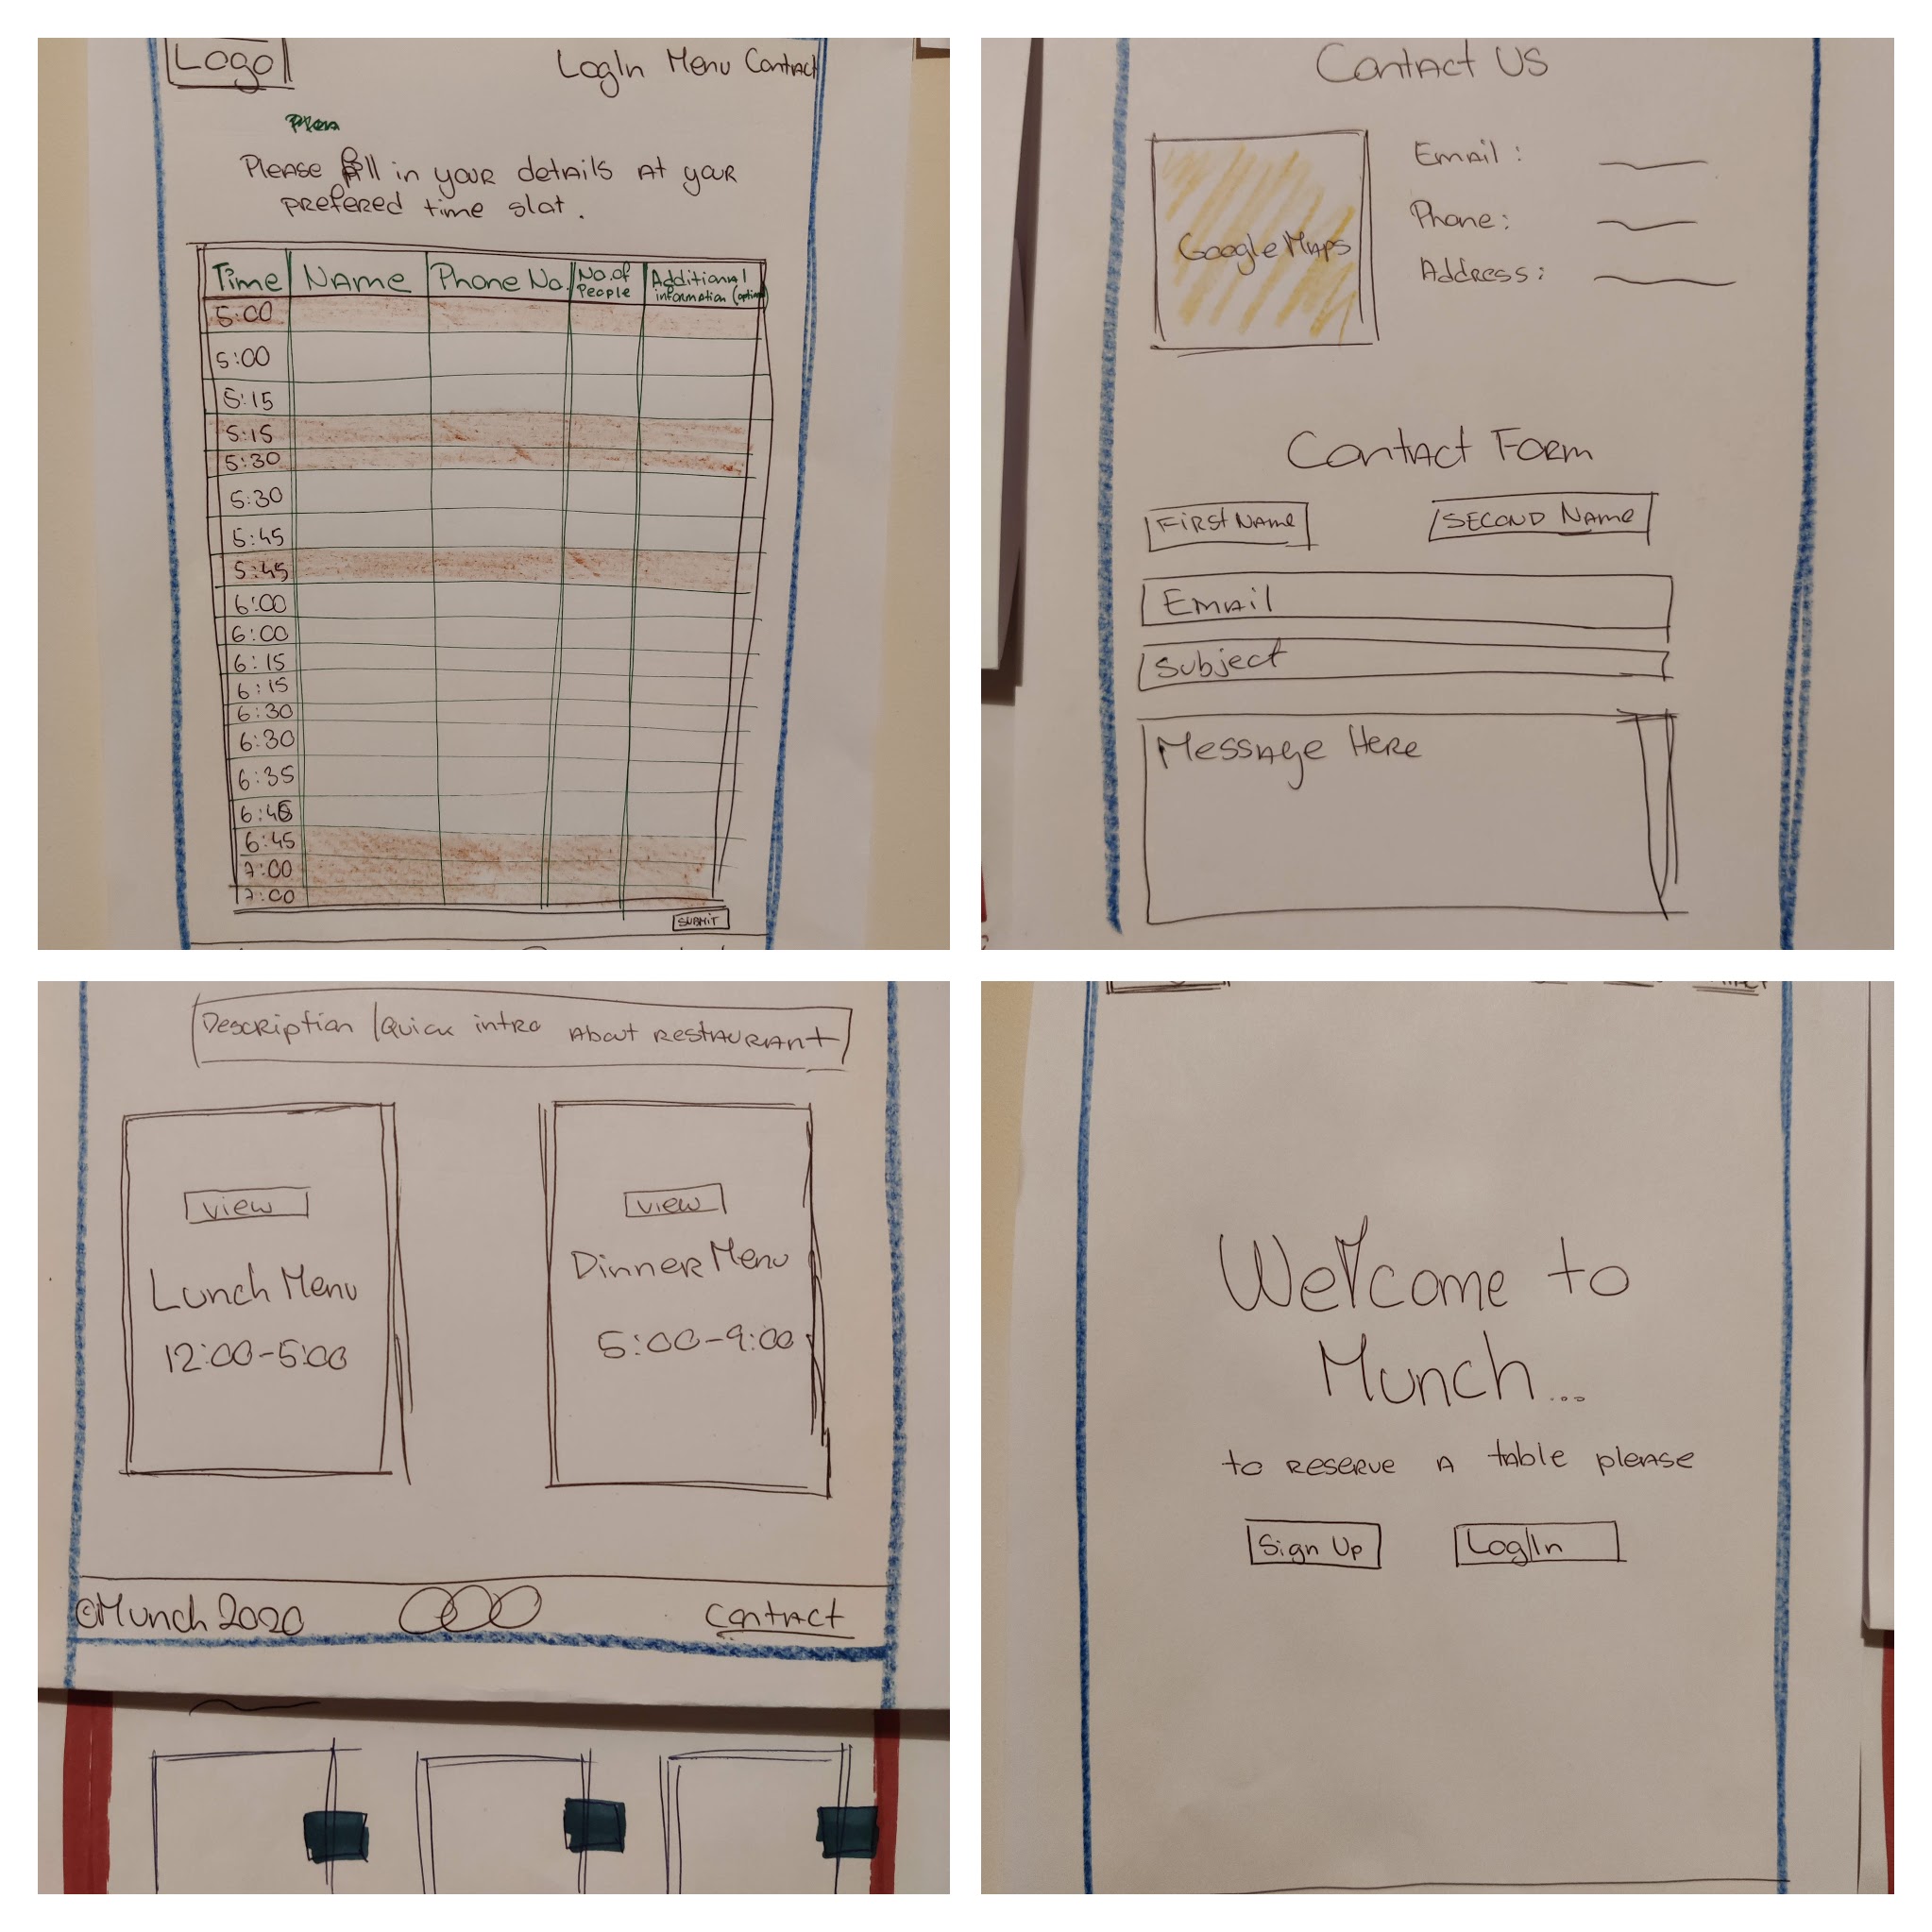 Logo
LogIn Menu Contact
Please fill in your details at your
prefered time slot.
Time Name Phone No. No. of People Additional information
5:00
5:00
5:15
5:15
5:30
5:30
5:45
5:45
6:00
6:00
6:15
6:15
6:30
6:30
6:35
6:45
7:00
7:00
SUBMIT
Contact Us
Google Maps
Email:
Phone:
Address:
Contact Form
First Name
SECOND Name
Email
Subject
Message Here
Description / Quick intro About restaurant
view
Lunch Menu
12:00-5:00
view
Dinner Menu
5:00-9:00
©Munch 2020
Contact
Welcome to
Munch...
to reserve a table please
Sign Up
LogIn